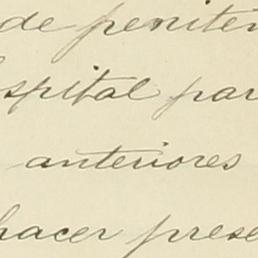 de peniten
spital par
anteriores
hacer prese